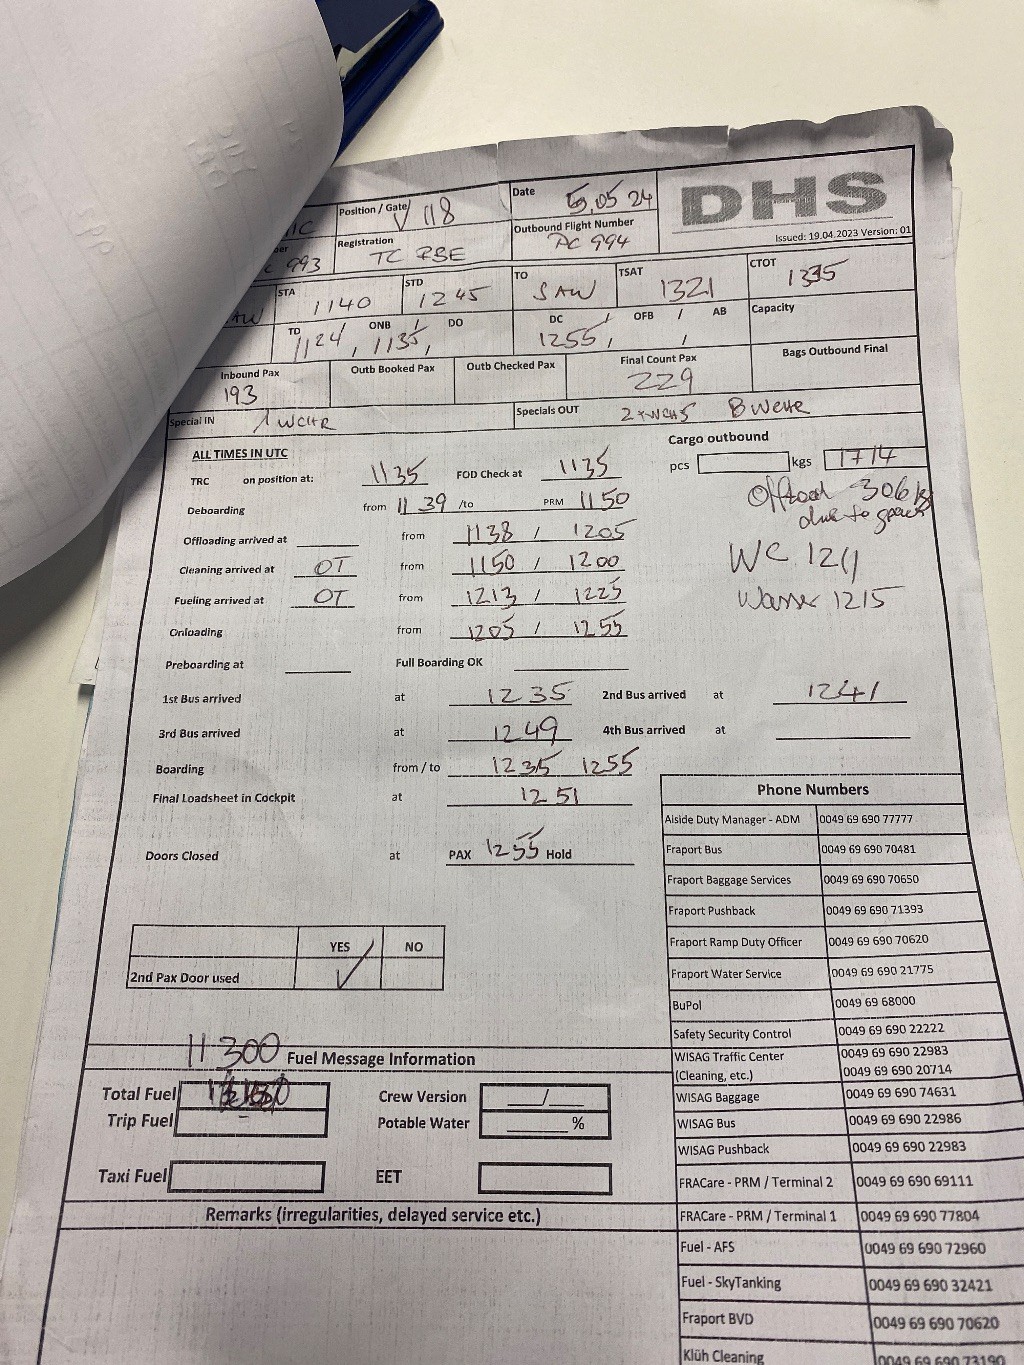 Position / Gate V 118
Date 5.05 24
DHS
Issued: 19.04.2023 Version: 01
993
Registration TC RBE
Outbound Flight Number PC 994
STA 1140
STD 1245
TO SAW
TSAT 1321
CTOT 1335
TD 1124, ONB / 1135, DO
DC 1255, / OFB / AB
Capacity
Inbound Pax 193
Outb Booked Pax
Outb Checked Pax
Final Count Pax 229
Bags Outbound Final
Special IN 1 WCHR
Specials OUT 2xWCHS 8 WCHR
ALL TIMES IN UTC
Cargo outbound
pcs kgs 1714
TRC on position at: 1135 FOD Check at 1135
Offload 306 kg
due to space
Deboarding from 1139 /to PRM 1150
Offloading arrived at from 1138 / 1205
Cleaning arrived at OT from 1150 / 1200
WC 1211
Fueling arrived at OT from 1213 / 1225
Wasser 1215
Onloading from 1205 / 1255
Preboarding at Full Boarding OK
1st Bus arrived at 1235 2nd Bus arrived at 1241
3rd Bus arrived at 1249 4th Bus arrived at
Boarding from / to 1235 1255
Final Loadsheet in Cockpit at 1251
Doors Closed at PAX 1255 Hold
YES NO
2nd Pax Door used ✓
11 300
Fuel Message Information
Total Fuel
Trip Fuel
Taxi Fuel
Crew Version __/__
Potable Water ____ %
EET
Remarks (irregularities, delayed service etc.)
Phone Numbers
Aiside Duty Manager - ADM 0049 69 690 77777
Fraport Bus 0049 69 690 70481
Fraport Baggage Services 0049 69 690 70650
Fraport Pushback 0049 69 690 71393
Fraport Ramp Duty Officer 0049 69 690 70620
Fraport Water Service 0049 69 690 21775
BuPol 0049 69 68000
Safety Security Control 0049 69 690 22222
WISAG Traffic Center 0049 69 690 22983
(Cleaning, etc.) 0049 69 690 20714
WISAG Baggage 0049 69 690 74631
WISAG Bus 0049 69 690 22986
WISAG Pushback 0049 69 690 22983
FRACare - PRM / Terminal 2 0049 69 690 69111
FRACare - PRM / Terminal 1 0049 69 690 77804
Fuel - AFS 0049 69 690 72960
Fuel - SkyTanking 0049 69 690 32421
Fraport BVD 0049 69 690 70620
Klüh Cleaning 0049 69 690 73190